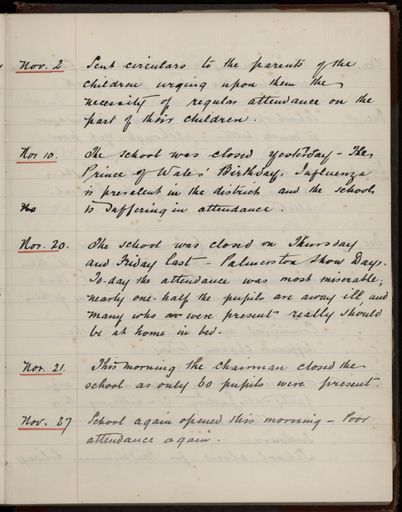 Nov. 2 Sent circulars to the parents of the
children urging upon them the
necessity of regular attendance on the
part of their children.
Nov 10. The school was closed yesterday - The
Prince of Wales' Birthday. Influenza
is prevalent in the district and the school
is suffering in attendance
Nov. 20. The school was closed on Thursday
and Friday last - Palmerston Show Days.
To-day the attendance was most miserable;
nearly one-half the pupils are away ill, and
many who were present really should
be at home in bed.
Nov. 21. This morning the chairman closed the
school as only 60 pupils were present.
Nov. 27 School again opened this morning - Poor
attendance again.